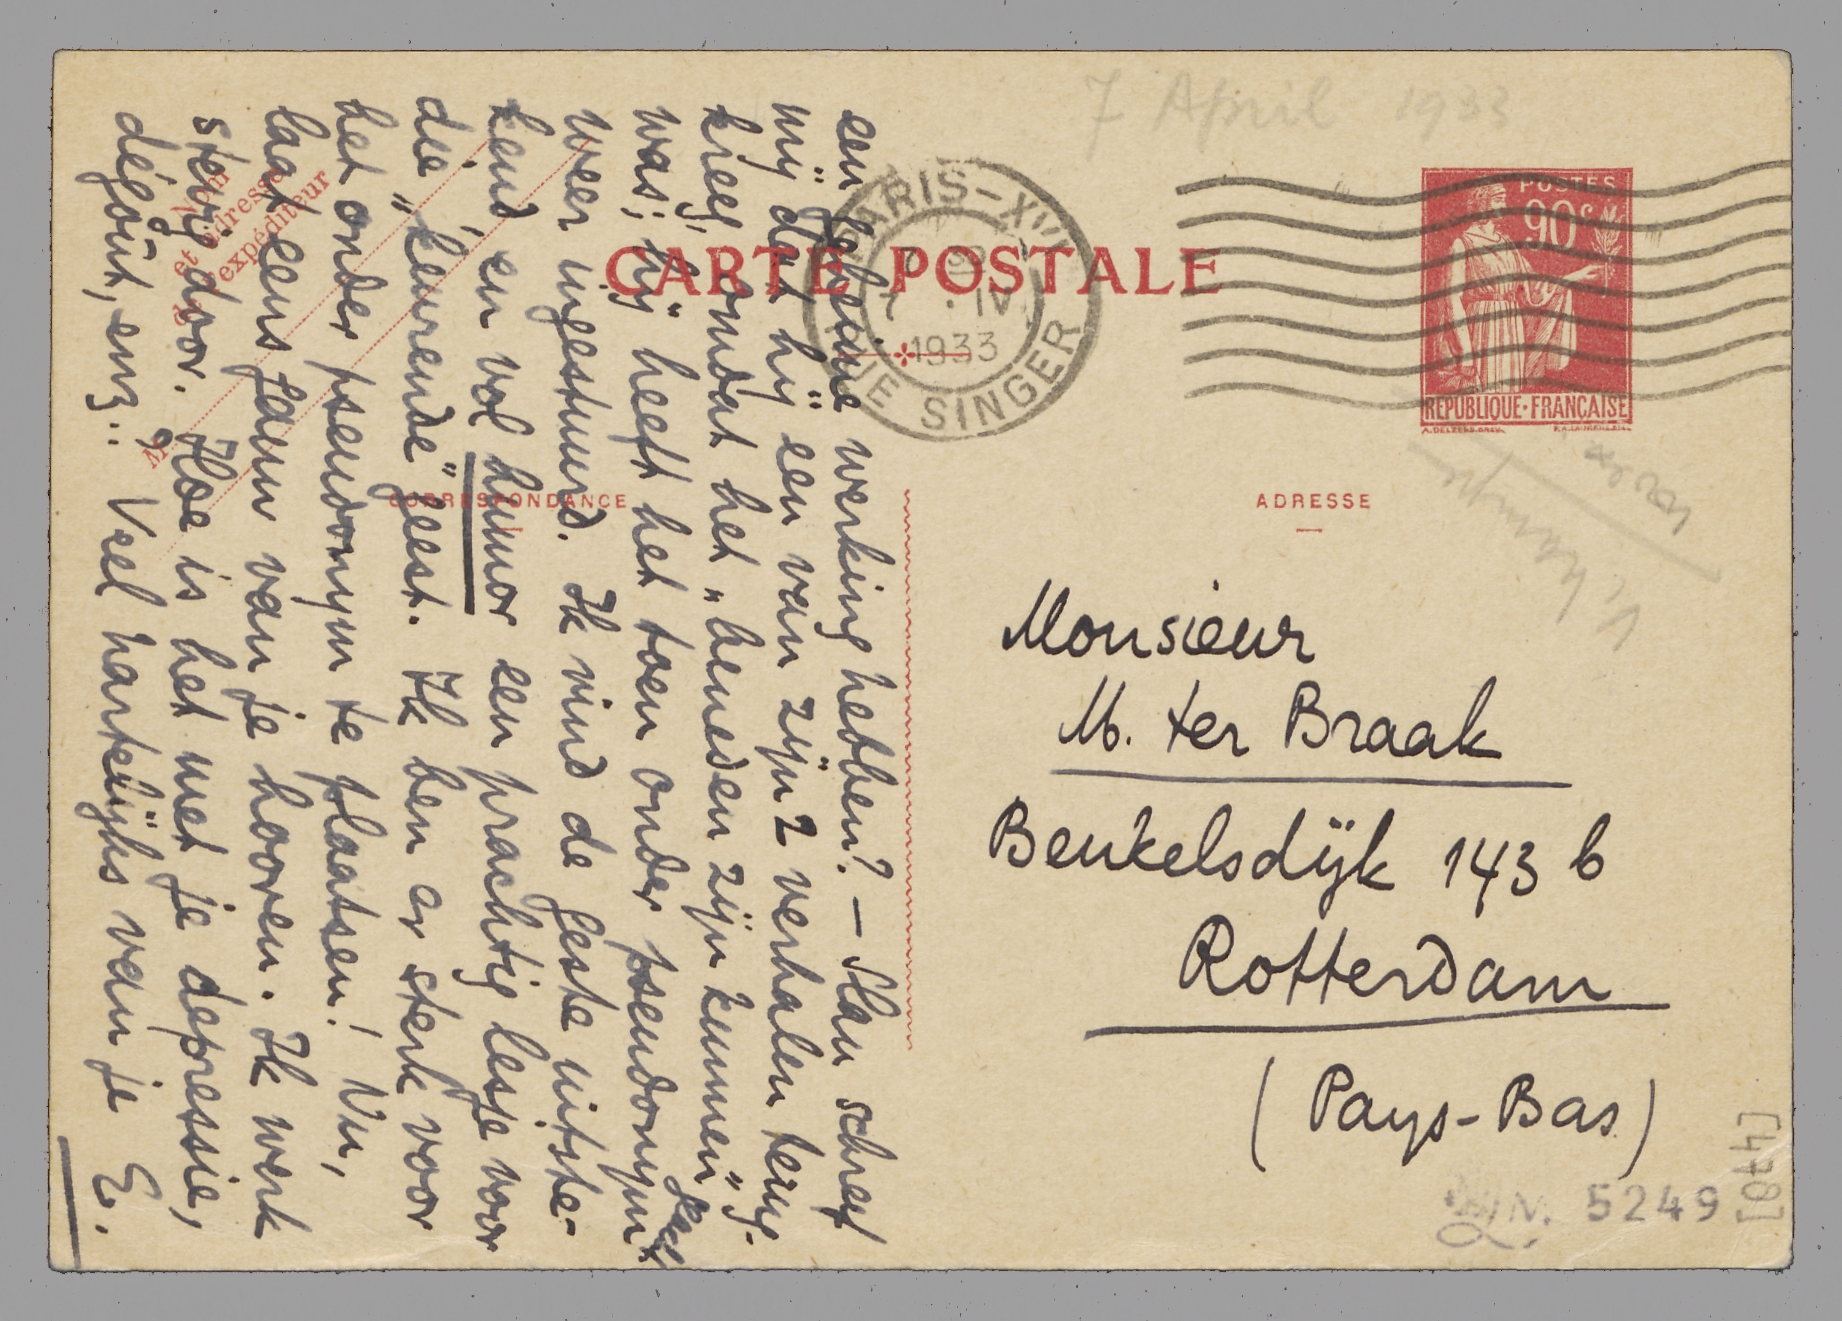 7 April 1933
PARIS-XVI
7 · IV
1933
RUE SINGER
POSTES
90c
REPUBLIQUE·FRANÇAISE
CARTE POSTALE
Nom
et adresse
de l'expéditeur
M
CORRESPONDANCE
ADRESSE
een geheime werking hebben? – Slau schreef
mij dat hij een van zijn 2 verhalen terug-
kreeg, omdat het „beneden zijn kunnen"
was; hij heeft het toen onder pseudoniem
weer ingestuurd. Ik vind de geste uitste-
kend, en vol humor een prachtig lesje voor
die „keurende" geest. Ik ben er sterk voor
het onder pseudonym te plaatsen! Nu,
laat eens gauw van je hooren. Ik werk
stevig door. Hoe is het met je depressie,
dégoût, enz.? Veel hartelijks van je E.
Monsieur
M. ter Braak
Beukelsdijk 143 b
Rotterdam
(Pays-Bas)
N. 5249
[478]